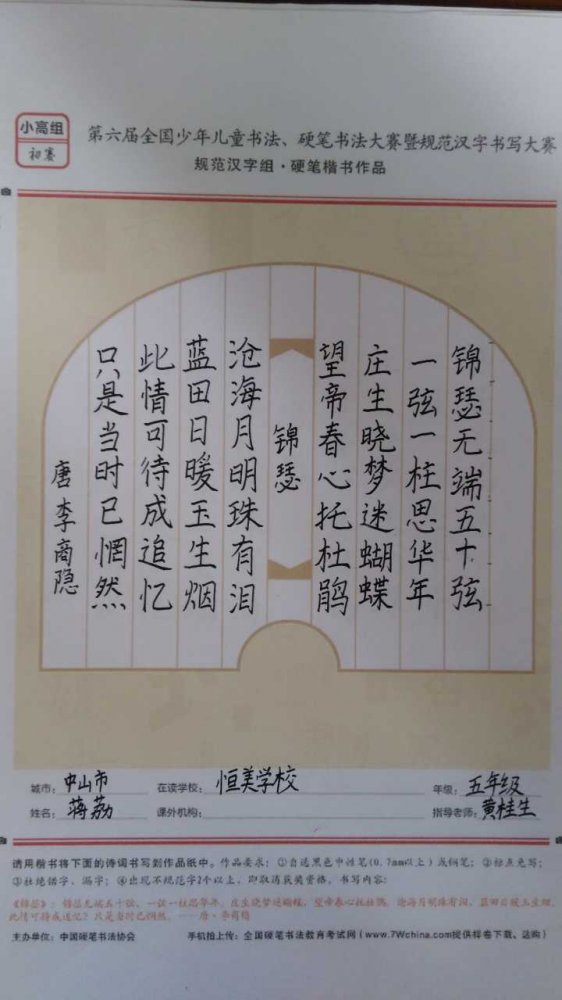 小高组
初赛
第六届全国少年儿童书法、硬笔书法大赛暨规范汉字书写大赛
规范汉字组·硬笔楷书作品
锦瑟无端五十弦
一弦一柱思华年
庄生晓梦迷蝴蝶
望帝春心托杜鹃
锦瑟
沧海月明珠有泪
蓝田日暖玉生烟
此情可待成追忆
只是当时已惘然
唐 李商隐
城市：中山市 在读学校：恒美学校 年级：五年级
姓名：蒋荔 课外机构： 指导老师：黄桂生
请用楷书将下面的诗词书写到作品纸中。作品要求：①自选黑色中性笔(0.7mm以上)或钢笔；②标点免写；
③杜绝错字、漏字；④出现不规范字2个以上，即取消获奖资格。书写内容：
《锦瑟》：锦瑟无端五十弦，一弦一柱思华年。庄生晓梦迷蝴蝶，望帝春心托杜鹃。沧海月明珠有泪，蓝田日暖玉生烟。
此情可待成追忆？只是当时已惘然。——唐·李商隐
主办单位：中国硬笔书法协会 手机拍上传：全国硬笔书法教育考试网(www.7Wchina.com提供样卷下载、选购)